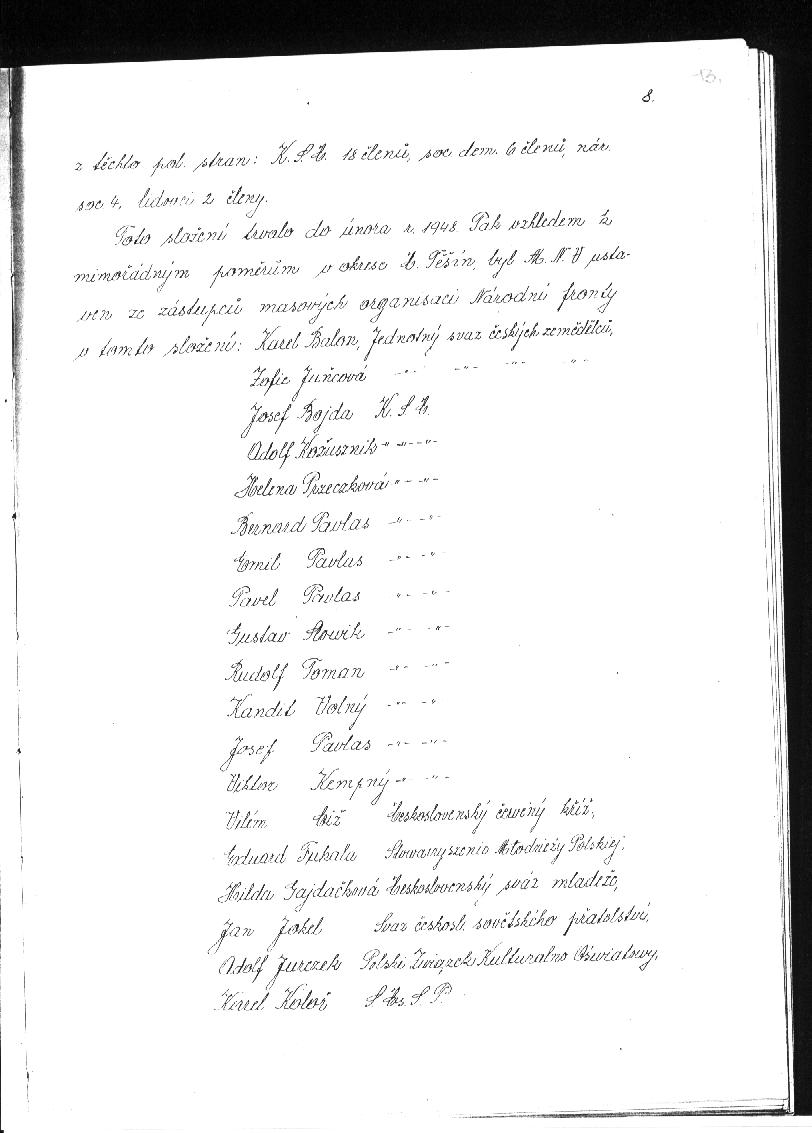 8.
z těchto pol. stran: K.S.Č. 18 členů, soc dem. 6 členů, nár.
soc 4, lidovci 2 členy.
Toto složení trvalo do února r. 1948. Pak vzhledem k
mimořádným poměrům v okrese Č. Těšín, byl M.N.V usta-
ven ze zástupců masových organisací Národní fronty
v tomto složení: Karel Balon, Jednotný svaz českých zemědělců,
Žofie Juńcová -"- -"- -"- -"-
Josef Bojda K.S.Č.
Adolf Kožusznik -"- -"- -"-
Helena Przeczková -"- -"-
Bernard Pavlas -"- -"-
Emil Pavlas -"- -"-
Pavel Pavlas -"- -"-
Gustav Slowik -"- -"-
Rudolf Toman -"- -"-
Kandit Volný -"- -"-
Josef Pavlas -"- -"-
Viktor Kempný -"- -"-
Vilém Číž Československý červený kříž,
Eduard Fukala Stowarzyszenie Młodzieży Polskiej,
Hilda Gajdačková Československý svaz mládeže,
Jan Jokel Svaz českosl. sovětského přátelství,
Adolf Jurczek Polski Związek Kulturalno Oświatowy,
Karel Kolář S.Čs.S.P.